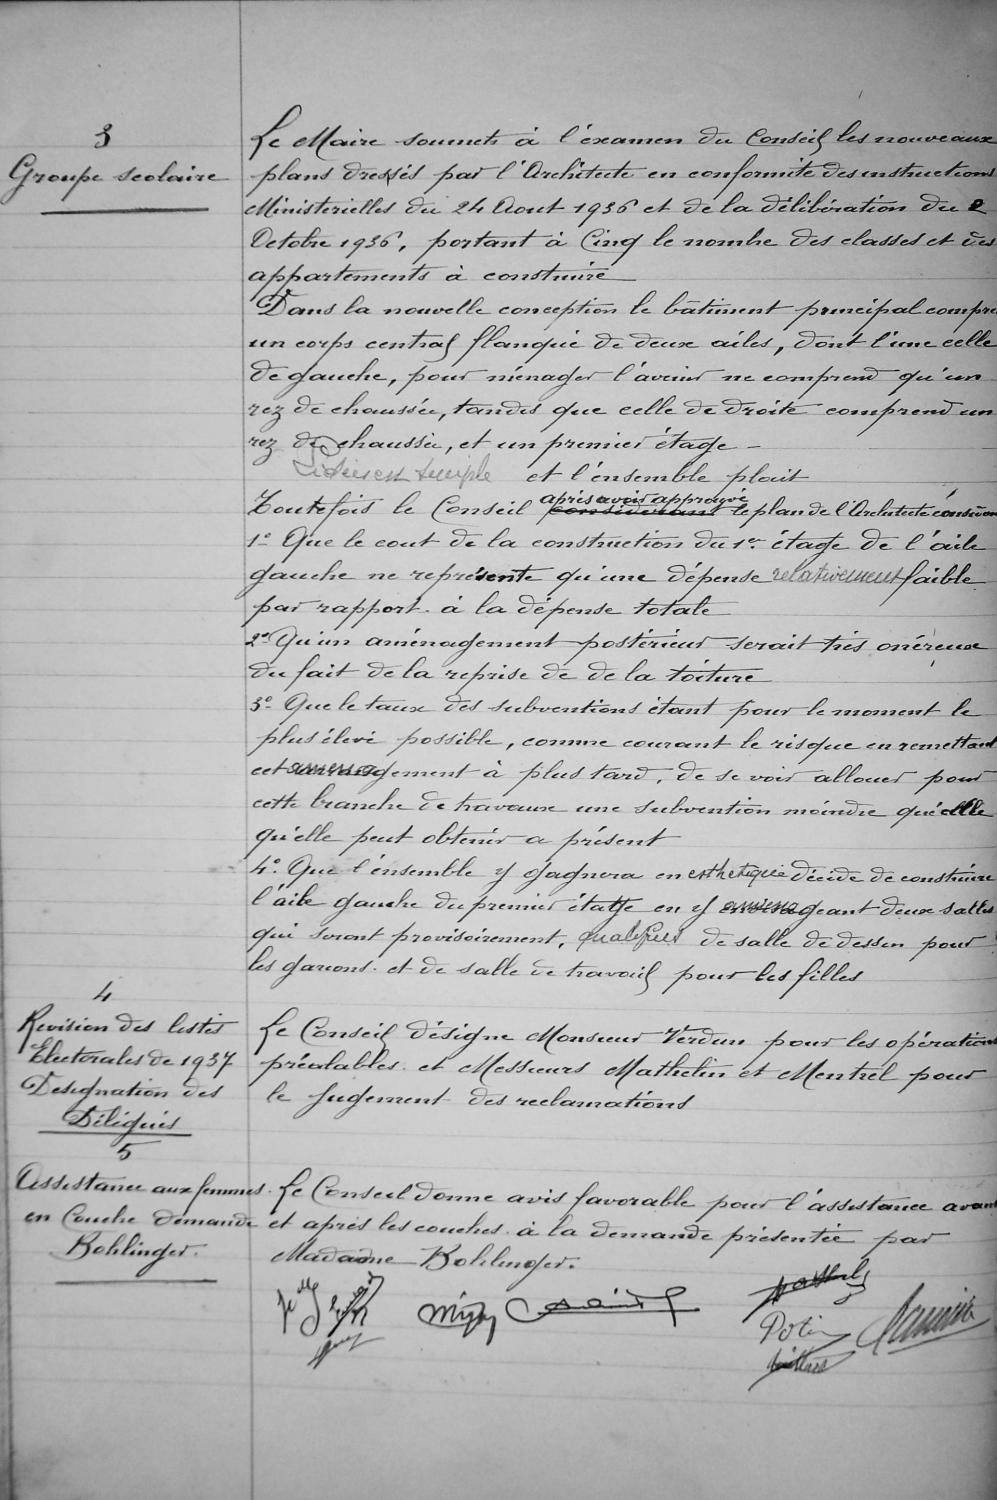 3
Groupe scolaire
Le Maire soumets à l'éxamen du Conseil les nouveaux
plans dressés par l'Architecte en conformité des instructions
Ministerielles du 24 Aout 1936 et de la délibération du 2
Octobre 1936, portant à Cinq le nombre des classes et des
appartements à construire
Dans la nouvelle conception le bâtiment principal compre
un corps central flanqué de deux ailes, dont l'une celle
de gauche, pour ménager l'avenir ne comprend qu'un
rez de chaussée, tandis que celle de droite comprend un
rez de chaussée, et un premier étage
et l'ensemble plait
Toutefois le Conseil considerant après avoir approuvé le plan de l'Architecte considèr
1° Que le cout de la construction du 1er étage de l'aile
gauche ne représente qu'une dépense relativement faible
par rapport à la dépense totale
2° Qu'un aménagement postérieur serait très onéreux
du fait de la reprise de de la toiture
3° Que le taux des subventions étant pour le moment le
plus élevé possible, comme courant le risque en remettant
cet amenagement à plus tard, de se voir allouer pour
cette branche de travaux une subvention moindre que celle
qu'elle peut obtenir a présent
4° Que l'ensemble y gagnera en esthetique décide de construire
l'aile gauche du premier étage en y amenageant deux salles
qui seront provisoirement, qualifiées de salle de dessin pour
les garcons. et de salle de travail pour les filles
4
Revision des listes
Electorales de 1937
Designation des
Délégués
Le Conseil désigne Monsieur Verdun pour les opérations
préalables. et Messieurs Mathelin et Mentrel pour
le jugement des reclamations
5
Assistance aux femmes
en Couche demande
Bohlinger.
Le Conseil donne avis favorable pour l'assistance avant
et après les couches. à la demande présentée par
Madame Bohlinger.
Potin